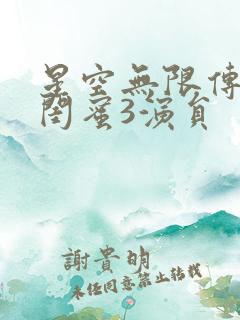 星空無限傳
閨蜜3演員
謝貴明
未经同意禁止转载